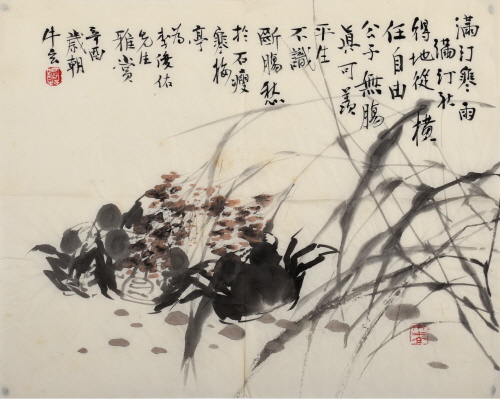 滿汀寒雨
滿汀秋
得地從橫
任自由
公子無腸
眞可羨
平生
不識
斷腸愁
於石瘦
寒梅
亭
為
李俊佑
先生
雅賞
辛酉
歲朝
牛玄